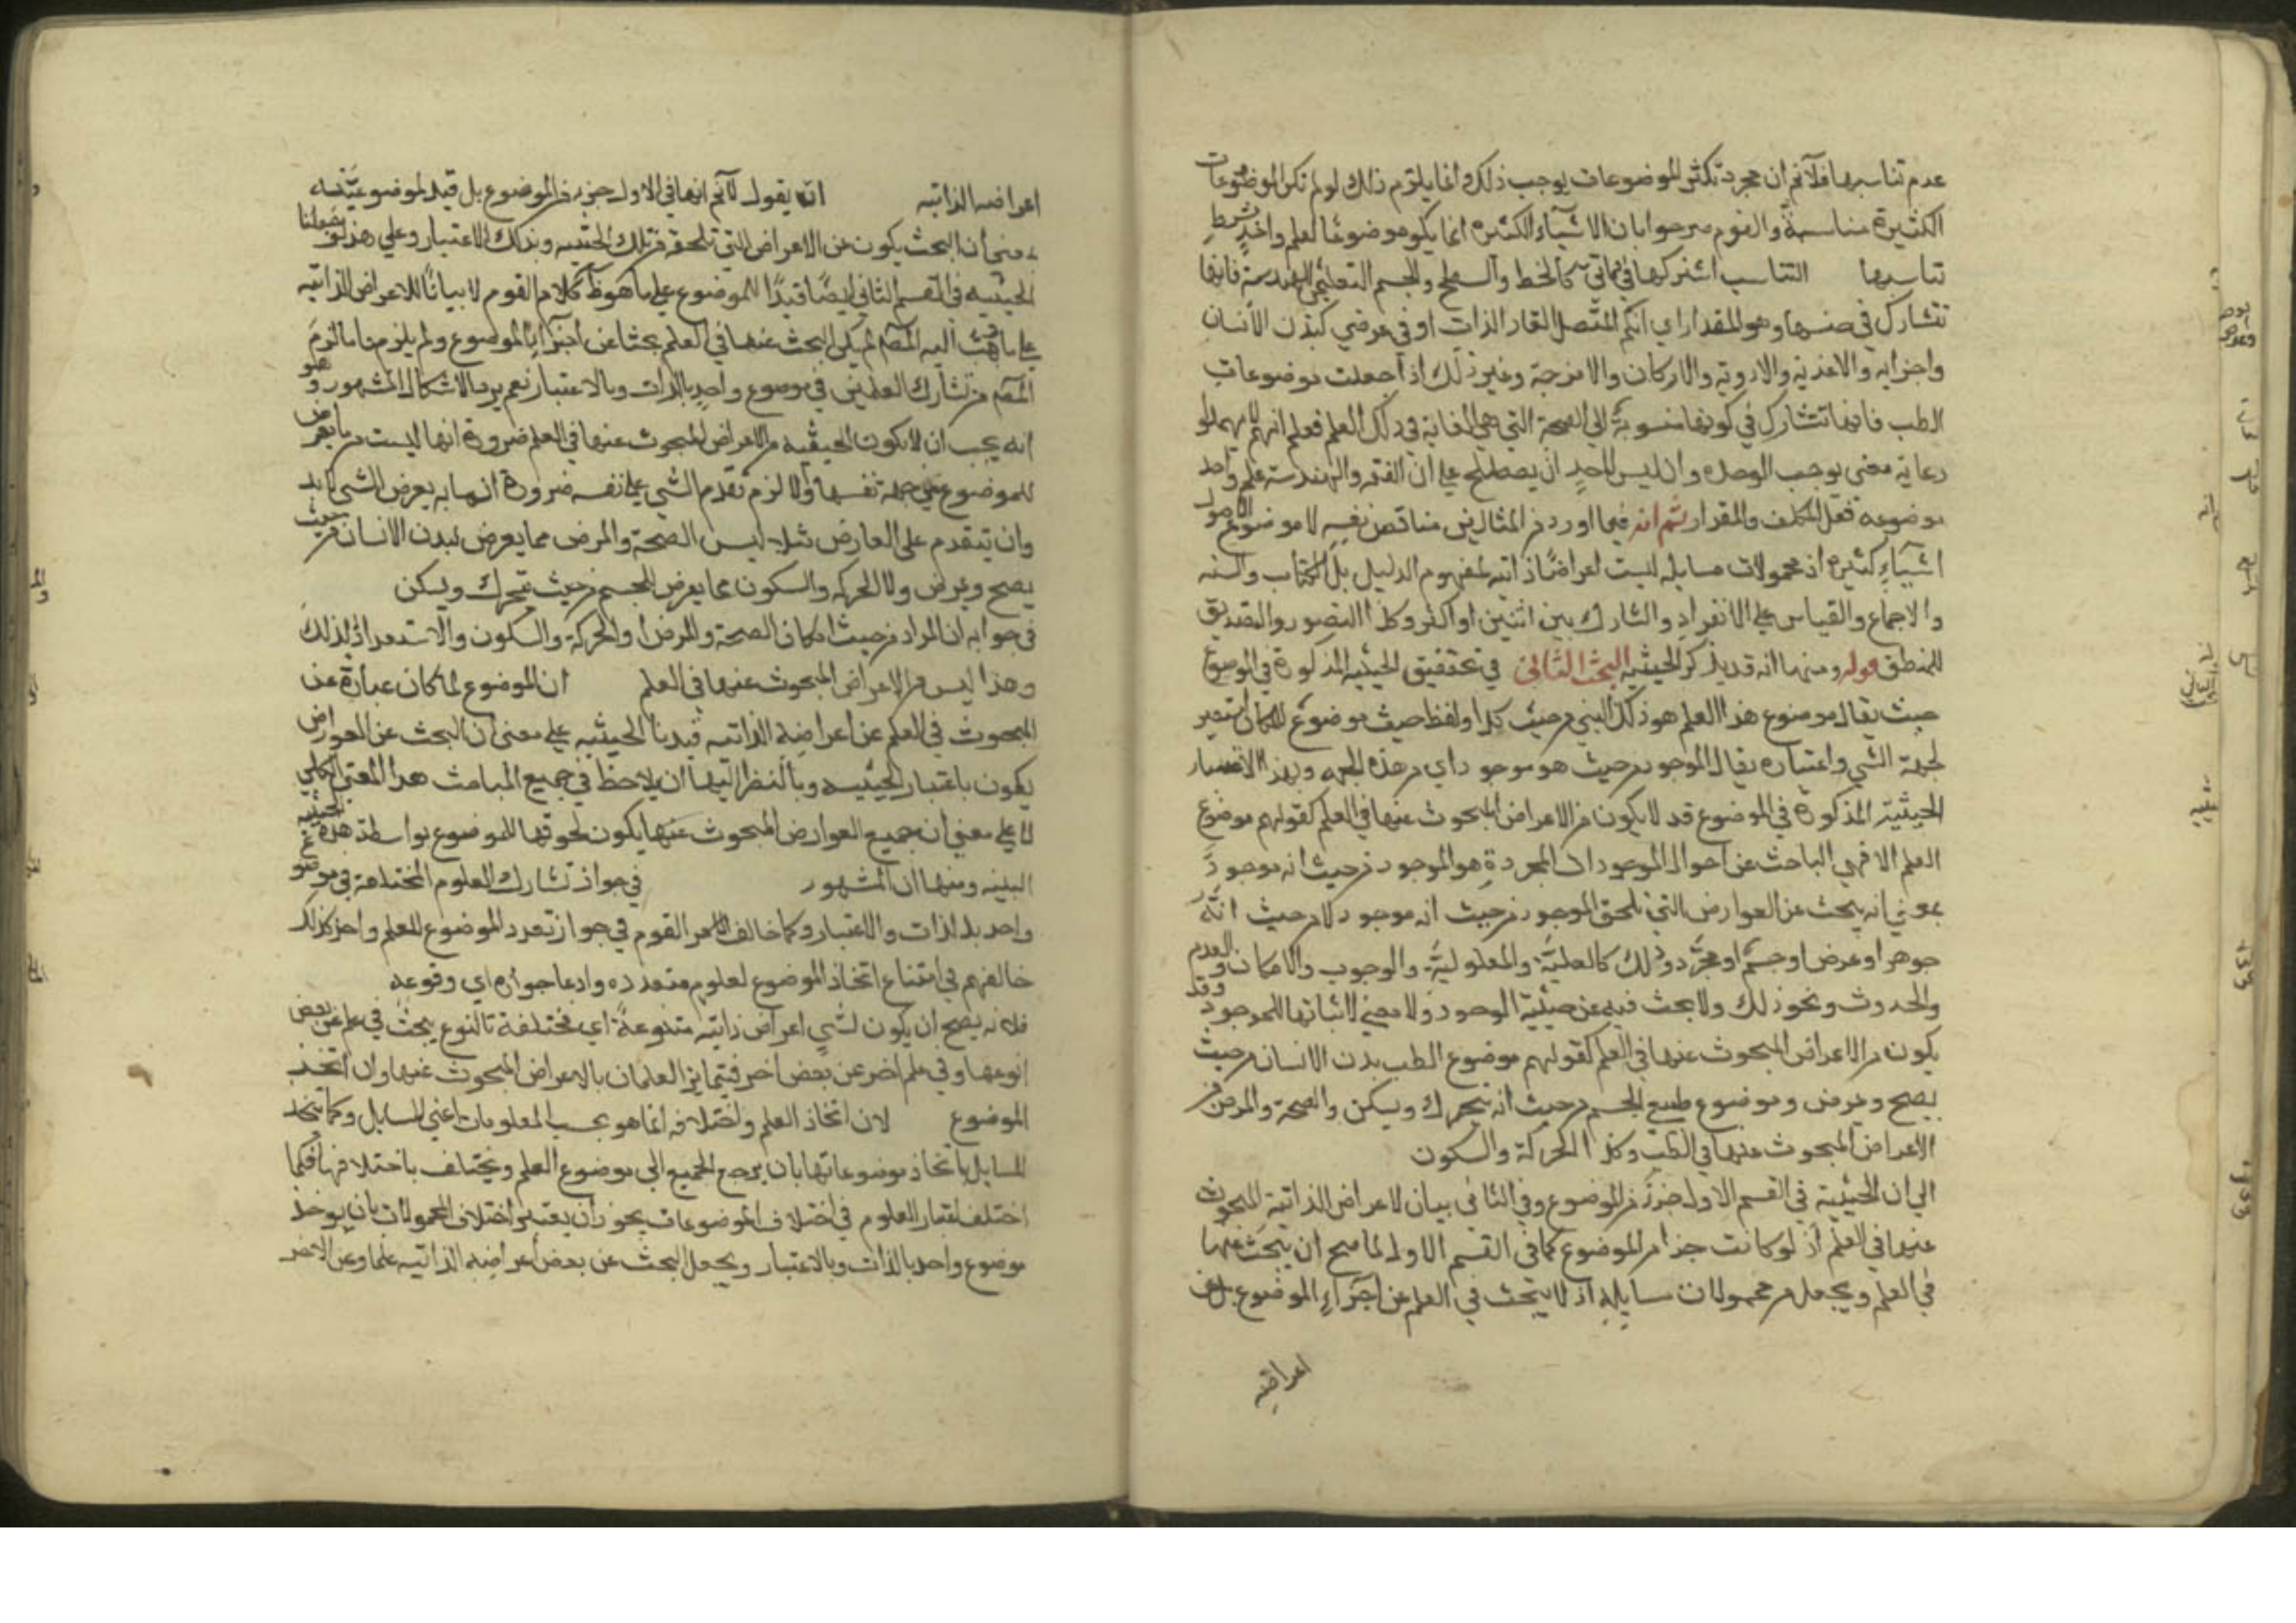 عدم تناسبها فلا نم ان مجرد تكثر الموضوعات يوجب ذلك وانما يلزم ذلك لو لم تكن الموضوعات
الكثيرة متناسبة والقوم صرحوا بان الاشياء الكثيره انما يكون موضوعا لعلم واحد بشرط
تناسبها التناسب اشتراكها في ذاتي كالخط والسطح والجسم التعليمي للهندسة فانها
تتشارك في جنسها وهو المقدار اي الكم المتصل القار الذات او في عرضي كبدن الانسان
واجزايه والاغذيه والادويه والاركان والامزجة وغير ذلك اذا جعلت موضوعات
الطب فانها تتشارك في كونها منسوبة الى الصحة التي هي الغاية في ذلك العلم فعلم انهم لم يهملوا
رعاية معنى يوجب الوحده وان ليس لاحد ان يصطلح على ان الفقه والهندسة علم واحد
موضوعه فعل المكلف والمقدار ثم انه فيما اورد من المثالين مناقض نفسه لا موضوع الاصول
اشياء كثيره اذ محمولات مسايله ليست اعراضا ذاتيه لمفهوم الدليل بل الكتاب والسنه
والاجماع والقياس على الانفراد والتشارك بين اثنين او اكثر وكذا التصور والتصديق
للمنطق قوله ومنها انه قد يذكر الحيثيه البحث الثاني في تحقيق الحيثيه المذكورة في الموضوع
حيث يقال موضوع هذا العلم هو ذلك الشي من حيث كذا ولفظ حيث موضوع للمكان استعير
لجهة الشي واعتباره يقال الموجود من حيث هو موجود اي من هذه الجهه وبهذا الاعتبار
الحيثية المذكورة في الموضوع قد لا يكون من الاعراض المبحوث عنها في العلم كقولهم موضوع
العلم الالهي الباحث عن احوال الموجودات المجردة هو الموجود من حيث انه موجود
بمعنى انه يبحث عن العوارض التي تلحق الموجود من حيث انه موجود لا من حيث انه
جوهر او عرض او جسم او مجرد وذلك كالعلية والمعلولية والوجوب والامكان والقدم
والحدوث ونحو ذلك ولا يبحث فيه عن حيثية الوجود ولا معنى لاثباتها للموجود وقد
يكون من الاعراض المبحوث عنها في العلم كقولهم موضوع الطب بدن الانسان من حيث
يصح ويمرض وموضوع طبيع الجسم من حيث انه يتحرك ويسكن والصحة والمرض من
الاعراض المبحوث عنها في الطب وكذا الحركة والسكون
الى ان الحيثية في القسم الاول جزء من الموضوع وفي الثاني بيان لاعراض الذاتية المبحوث
عنها في العلم اذ لو كانت جزا من الموضوع كما في القسم الاول لما صح ان يبحث عنها
في العلم ويجعل من محمولات مسايله اذ لا يبحث في العلم عن اجزاء الموضوع بل عن
اعراضه
اعراضه الذاتيه ان يقول لا نم انها في الاول جزء من الموضوع بل قيد لموضوعيته
بمعنى ان البحث يكون عن الاعراض التي تلحقه من تلك الحيثيه وبذلك الاعتبار وعلى هذا لو جعلنا
الحيثيه في القسم الثاني ايضا قيدا للموضوع على ما هو ظ كلام القوم لا بيانا للاعراض الذاتيه
على ما ذهب اليه المص لم يكن البحث عنها في العلم بحثا عن اجزاء الموضوع ولم يلزمنا ما لزم
المص من تشارك العلمين في موضوع واحد بالذات وبالاعتبار نعم يرد الاشكال المشهور وهو
انه يجب ان لا يكون الحيثيه من الاعراض المبحوث عنها في العلم ضرورة انها ليست مما يعرض
للموضوع من جهة نفسها والا لزم تقدم الشي على نفسه ضرورة ان ما به يعرض الشي لا بد
وان يتقدم على العارض مثلا ليس الصحة والمرض مما يعرض لبدن الانسان من حيث
يصح ويمرض ولا الحركه والسكون مما يعرض للجسم من حيث يتحرك ويسكن
في جوابه ان المراد من حيث امكان الصحة والمرض او الحركة والسكون والاستعداد لذلك
وهذا ليس من الاعراض المبحوث عنها في العلم ان الموضوع لما كان عبارة عن
المبحوث في العلم عن اعراضه الذاتيه قيدنا الحيثيه على معنى ان البحث عن العوارض
يكون باعتبار الحيثيه وبالنظر اليها ان يلاحظ في جميع المباحث هذا المعنى الكلي
لا على معنى ان جميع العوارض المبحوث عنها يكون لحوقها للموضوع بواسطة هذه الحيثيه
البتيه ومنها ان المشهور في جواز تشارك العلوم المختلفة في موضوع
واحد بالذات والاعتبار وكما خالف القوم في جواز تعدد الموضوع لعلم واحد كذلك
خالفهم في امتناع اتحاد الموضوع لعلوم متعدده وادعا جوازه اي وقوعه
فلانه يصح ان يكون لشي اعراض ذاتيه متنوعة اي مختلفة بالنوع يبحث في علم عن بعض
انوعها وفي علم اخر عن بعض اخر فيتمايز العلمان بالاعراض المبحوث عنها وان اتحد
الموضوع لان اتحاد العلم واختلافه انما هو بحسب المعلومات اعني المسايل وكما يتحد
المسايل باتحاد موضوعاتها بان يرجع الجميع الى موضوع العلم ويختلف باختلافها فكما
اختلف اعتبار العلوم في اختلاف الموضوعات يجوز ان يعتبر اختلاف المحمولات بان يوخذ
موضوع واحد بالذات وبالاعتبار ويجعل البحث عن بعض اعراضه الذاتيه علما وعن الاخر